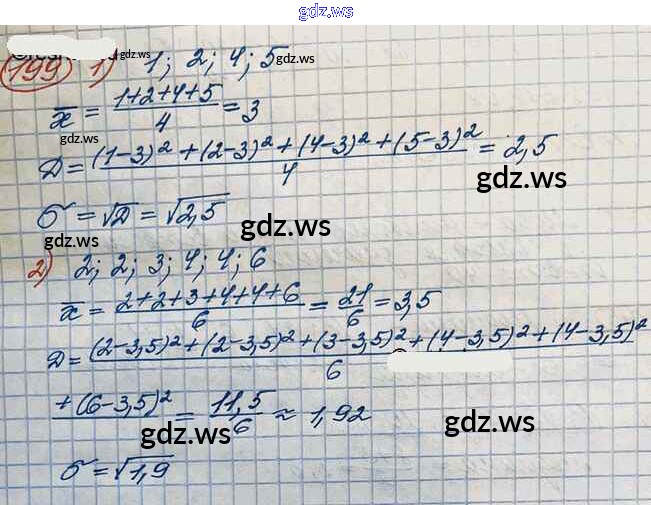 gdz.ws
199 1) 1; 2; 4; 5 gdz.ws
gdz.ws
x̄ = (1+2+4+5)/4 = 3
gdz.ws
D = ((1-3)² + (2-3)² + (4-3)² + (5-3)²)/4 = 2,5
gdz.ws gdz.ws
σ = √D = √2,5
gdz.ws
2) 2; 2; 3; 4; 4; 6
gdz.ws
x̄ = (2+2+3+4+4+6)/6 = 21/6 = 3,5
gdz.ws
D = ((2-3,5)² + (2-3,5)² + (3-3,5)² + (4-3,5)² + (4-3,5)²
+ (6-3,5)²)/6 = 11,5/6 ≈ 1,92
gdz.ws gdz.ws
σ = √1,9
gdz.ws